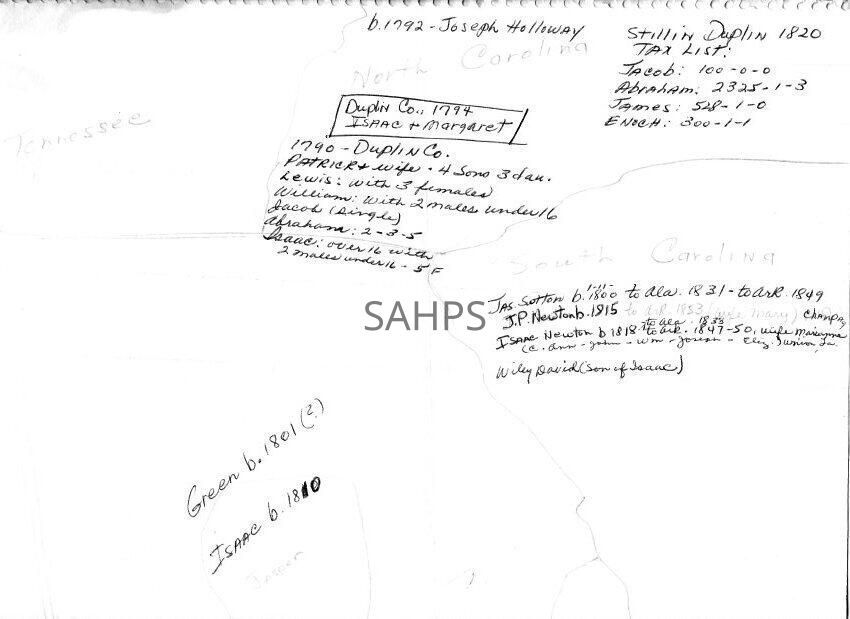 b.1792 - Joseph Holloway
North Carolina
Tennessee
Still in Duplin 1820
TAX LIST:
JACOB: 100-0-0
Abraham: 2325-1-3
JAMES: 528-1-0
ENOCH: 300-1-1
Duplin Co., 1794
ISAAC + Margaret
1790 - Duplin Co.
PATRICK + wife - 4 Sons 3 dau.
Lewis: with 3 females
William: with 2 males under 16
Jacob (single)
Abraham: 2-3-5
Isaac: over 16 with
2 males under 16 - 5 F
South Carolina
JAS. Sutton b. 1800 to Ala. 1831 - to Ark. 1849
J.P. Newton b. 1815 to Ark 1853 (wife Mary)
to ala. 1833
ISAAC Newton b 1818 to ark. 1847-50, wife
(c. Ann - John - Wm - Joseph - Eliz.
Wiley David (son of Isaac)
SAHPS
Green b. 1801 (?)
ISAAC b. 1810
Jasper